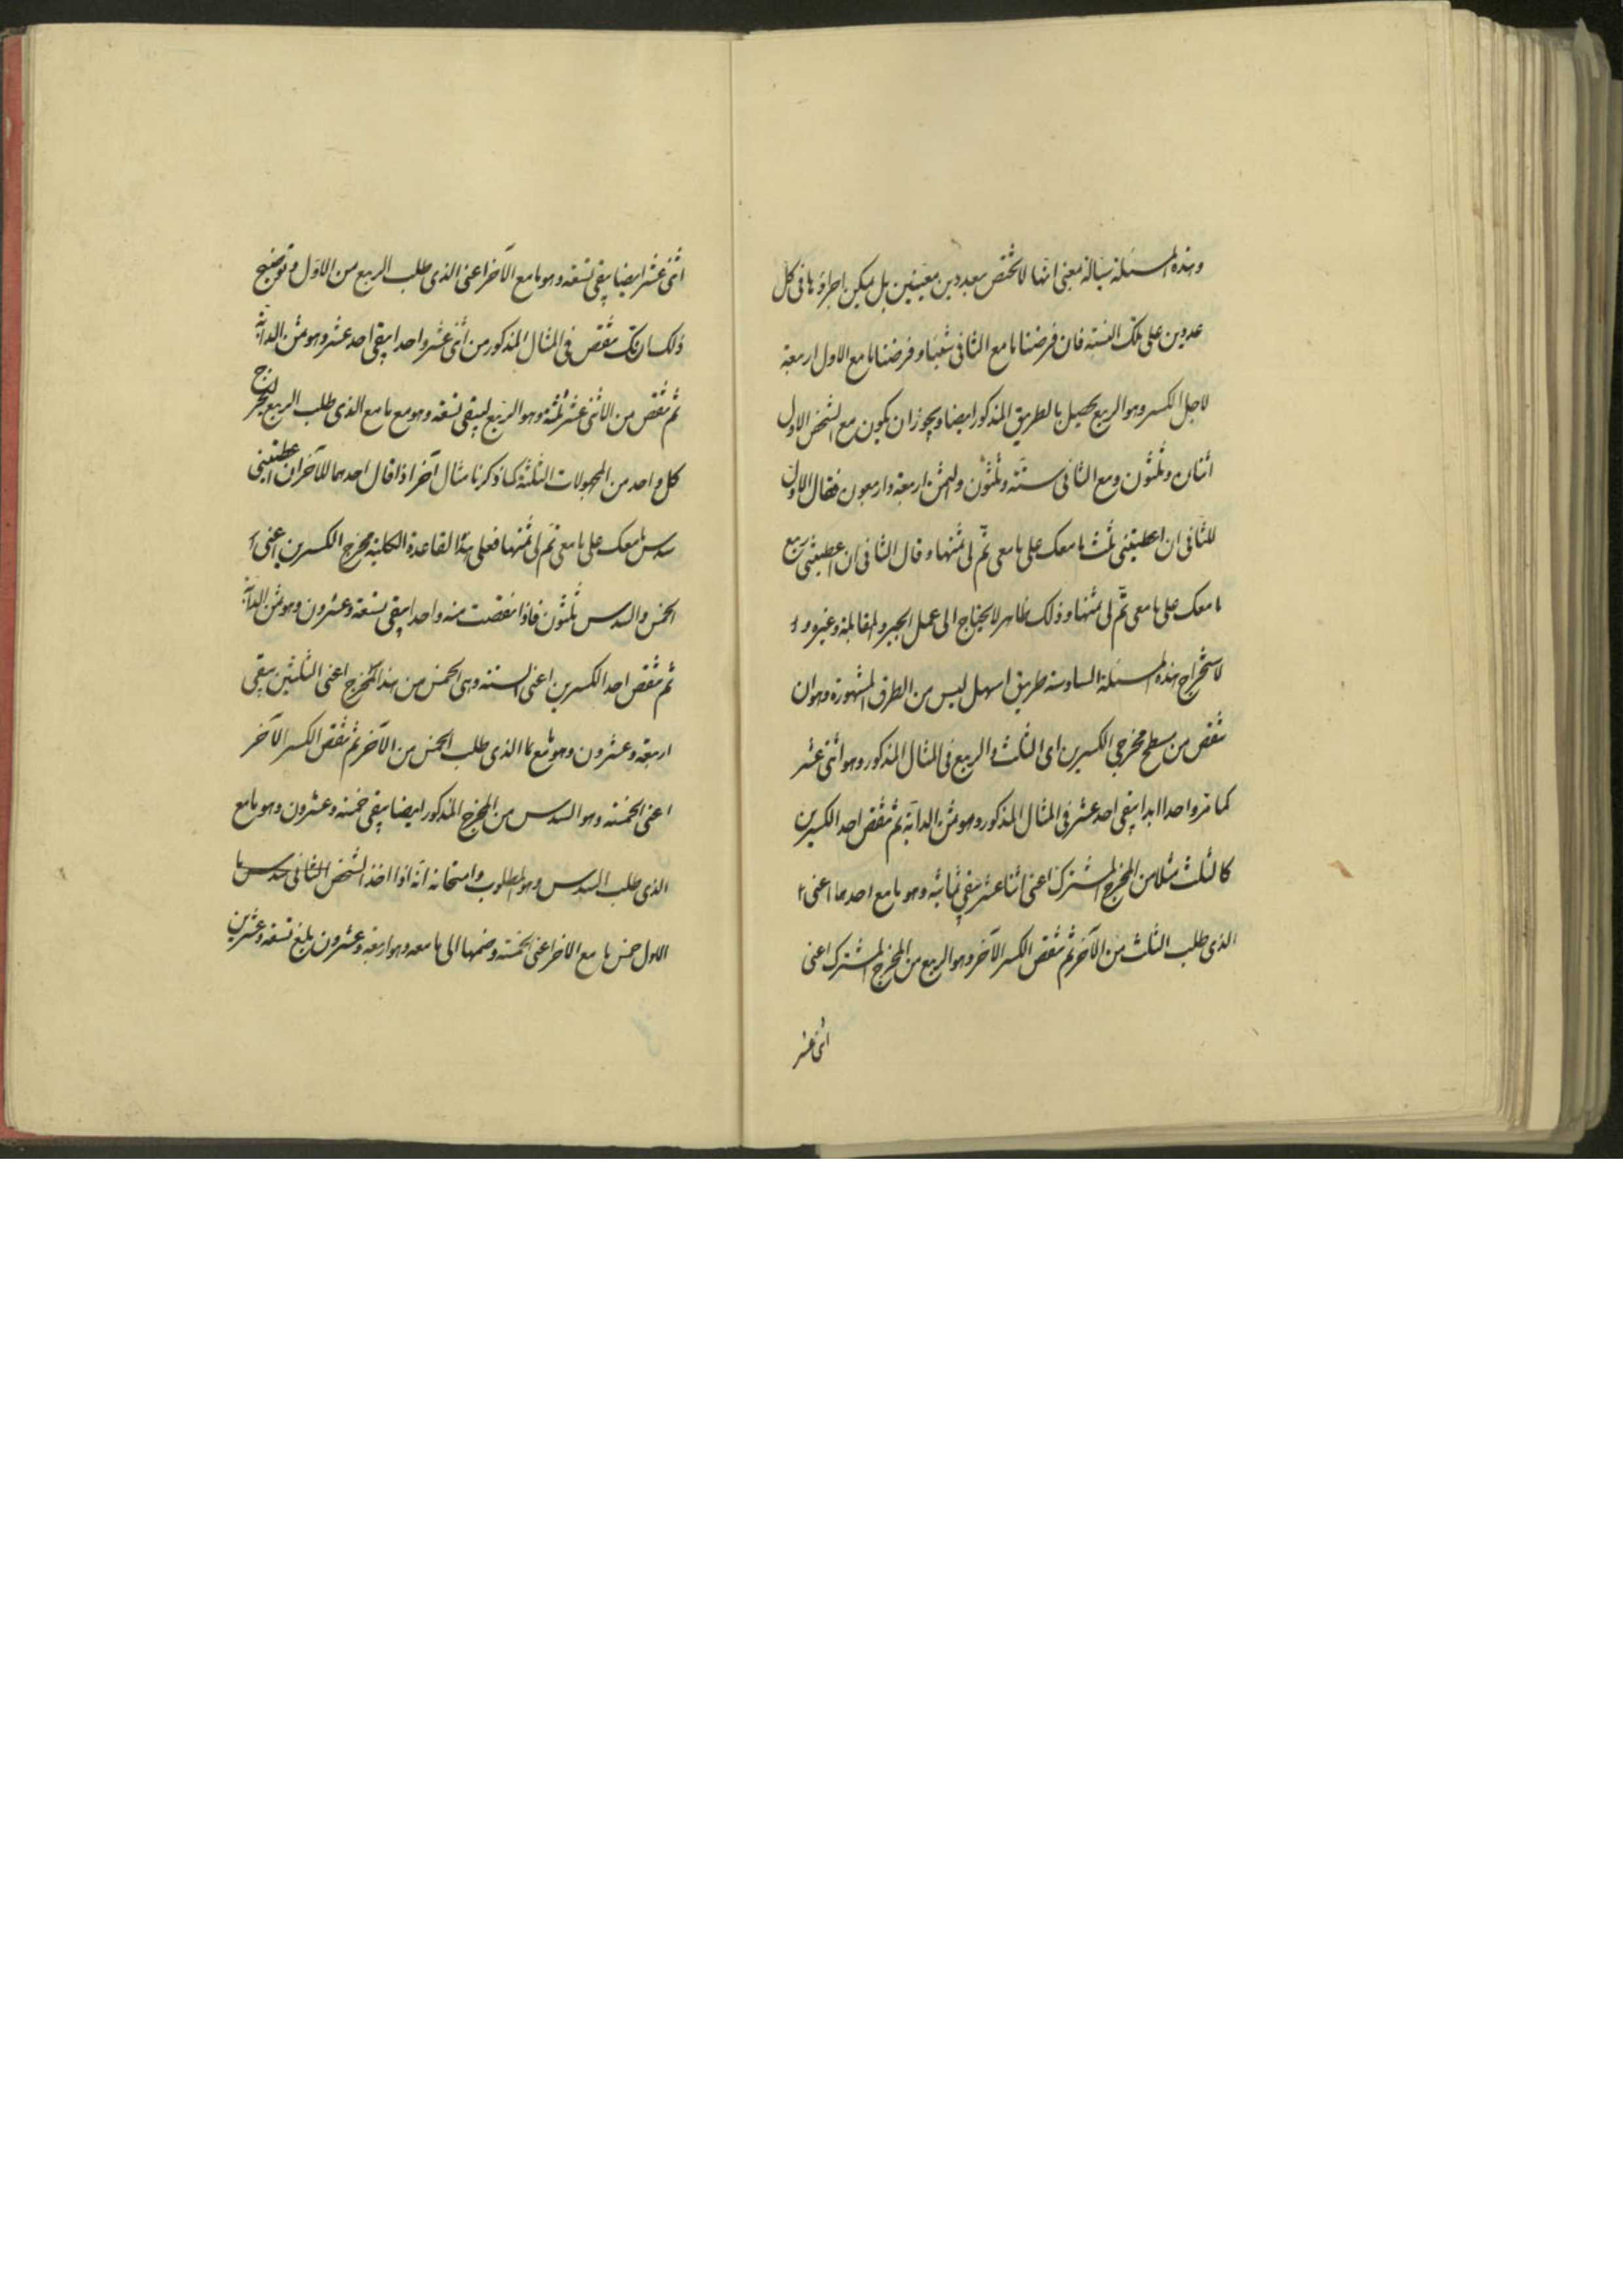 وهذه المسئلة سيالة بمعنى انها لا تختص بعددين معينين بل يمكن اجراؤها فى كل
عددين على تلك النسبة فان فرضنا ما مع الثانى شيئا وفرضنا ما مع الاول اربعة
لاجل الكسر وهو الربع يحصل بالطريق المذكور ايضا ويجوز ان يكون مع الشخص الاول
اثنان وثلثون ومع الثانى ستة وثلثون والثمن اربعة واربعون فقال الاول
للثانى ان اعطيتنى ثلث ما معك على ما معى تم لى ثمنها وقال الثانى ان اعطيتنى ربع
ما معك على ما معى تم لى ثمنها وذلك ظاهر لا يحتاج الى عمل الجبر والمقابلة وغيره و
لاستخراج هذه المسئلة السادسة طريق اسهل ليس من الطرق المشهورة وهو ان
تنقص من مسطح مخرجى الكسرين اى الثلث والربع فى المثال المذكور وهو اثنى عشر
كما مر واحدا ابدا يبقى احد عشر فى المثال المذكور وهو ثمن الدابة ثم تنقص احد الكسرين
كالثلث مثلا من المخرج المشترك اعنى اثنا عشر يبقى ثمانية وهو ما مع احدهما اعنى
الذى طلب الثلث من الآخر ثم تنقص الكسر الآخر وهو الربع من المخرج المشترك اعنى
اثنى عشر
اثنى عشر ايضا يبقى تسعة وهو ما مع الآخر اعنى الذى طلب الربع من الاول وتوضيح
ذلك انك تنقص فى المثال المذكور من اثنى عشر واحدا يبقى احد عشر وهو ثمن الدابة
ثم تنقص من الاثنى عشر ثلثة وهو الربع ليبقى تسعة وهو مع ما مع الذى طلب الربع ليخرج
كل واحد من المجهولات الثلثة كما ذكرنا مثال آخر اذا قال احدهما للآخر ان اعطيتنى
سدس ما معك على ما معى تم لى ثمنها فعلى هذا القاعدة الكلية مخرج الكسرين اعنى
الخمس والسدس ثلثون فاذا نقصت منه واحدا يبقى تسعة وعشرون وهو ثمن الدابة
ثم تنقص احد الكسرين اعنى الستة وهى الخمس من هذا المخرج اعنى الثلثين يبقى
اربعة وعشرون وهو ما مع الذى طلب الخمس من الآخر ثم تنقص الكسر الآخر
اعنى الخمسة وهو السدس من المخرج المذكور ايضا يبقى خمسة وعشرون وهو ما مع
الذى طلب السدس وهو المطلوب وامتحانه انه اذا اخذ الشخص الثانى سدس ما
الاول خمس ما مع الاخر اعنى الخمسة وضمها الى ما معه وهو اربعة وعشرون يبلغ تسعة وعشرين